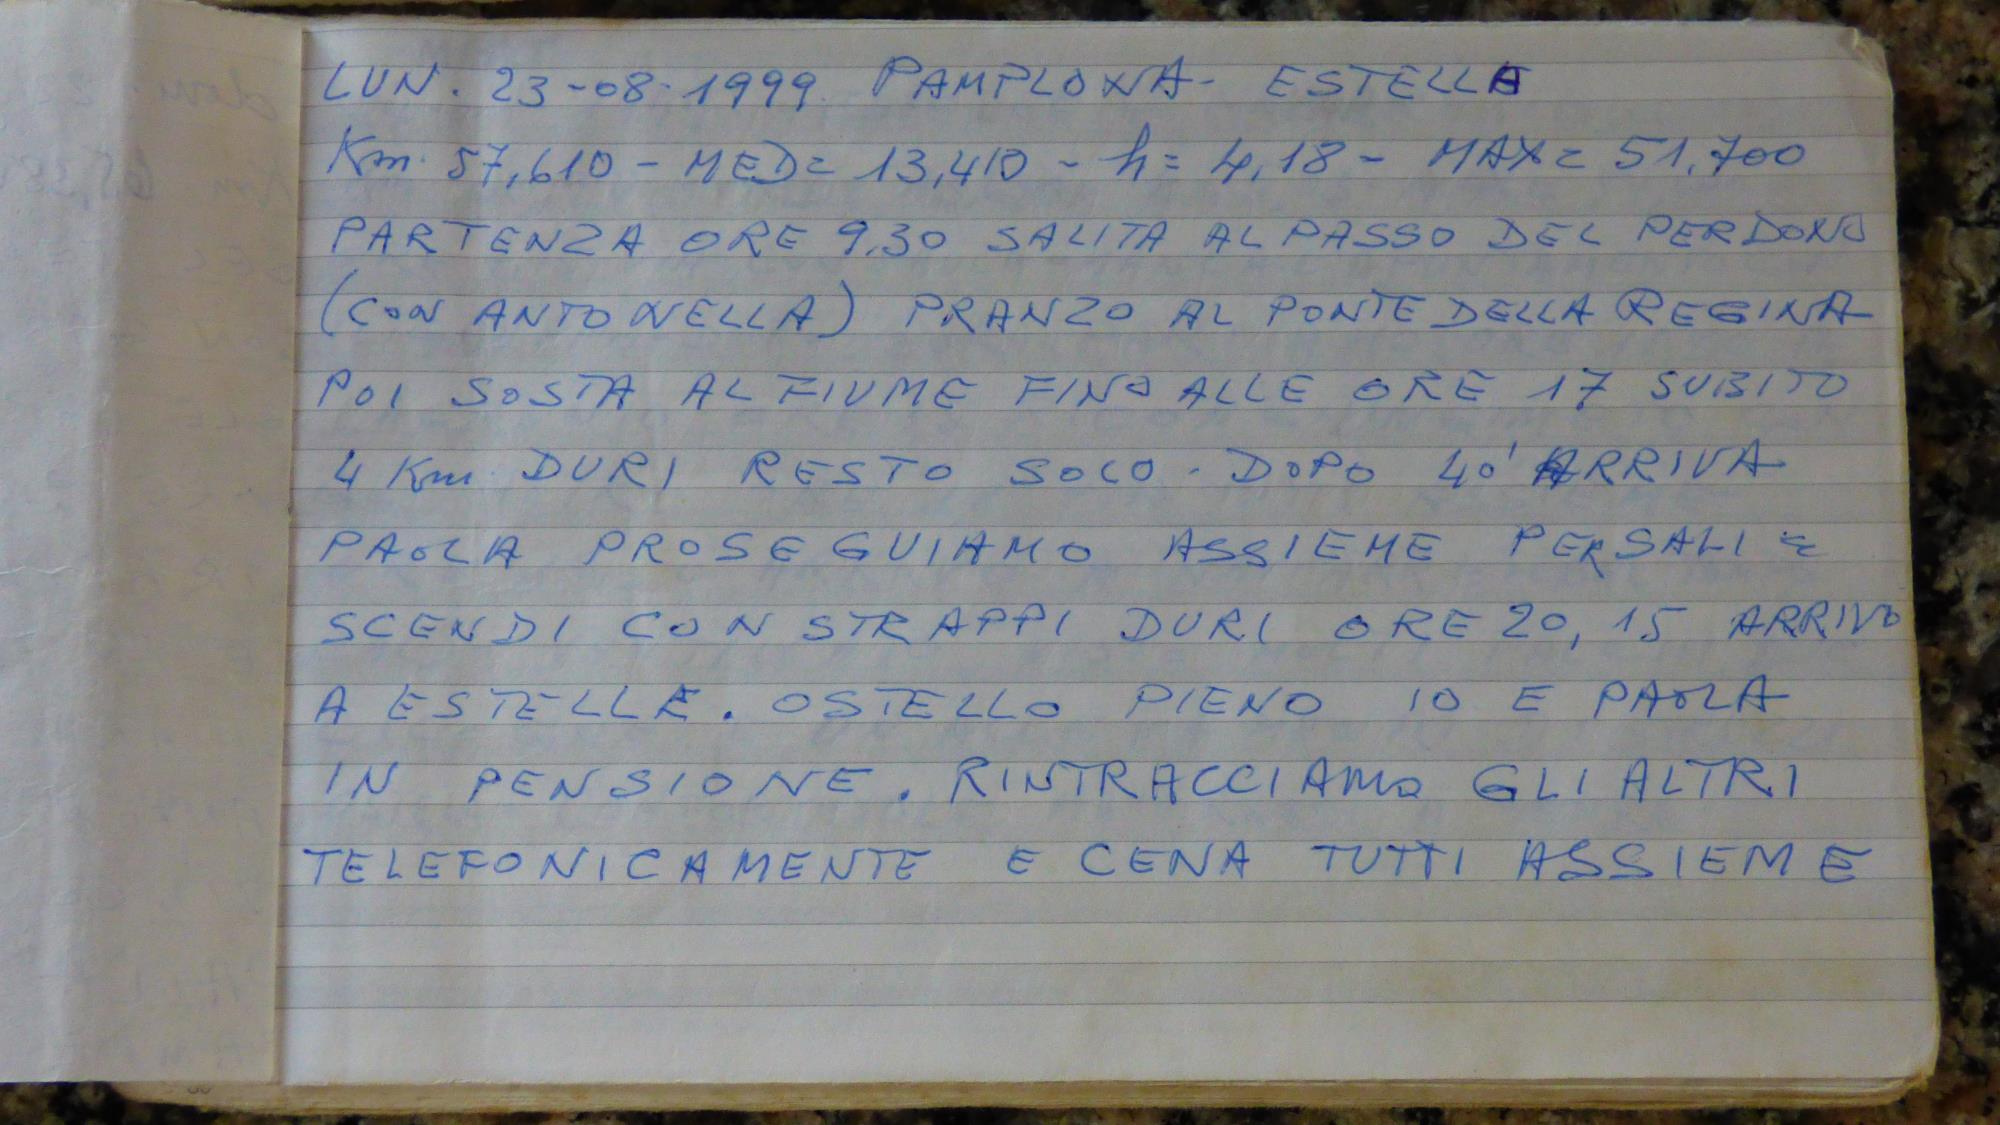 LUN. 23-08-1999. PAMPLONA- ESTELLA
Km. 57,610 - MED= 13,410 - h= 4,18 - MAX= 51,700
PARTENZA ORE 9,30 SALITA AL PASSO DEL PERDONO
(CON ANTONELLA) PRANZO AL PONTE DELLA REGINA
POI SOSTA AL FIUME FINO ALLE ORE 17 SUBITO
4 Km DURI RESTO SOLO. DOPO 40' ARRIVA
PAOLA PROSEGUIAMO ASSIEME PER SALI =
SCENDI CON STRAPPI DURI ORE 20,15 ARRIVO
A ESTELLE. OSTELLO PIENO IO E PAOLA
IN PENSIONE. RINTRACCIAMO GLI ALTRI
TELEFONICAMENTE E CENA TUTTI ASSIEME